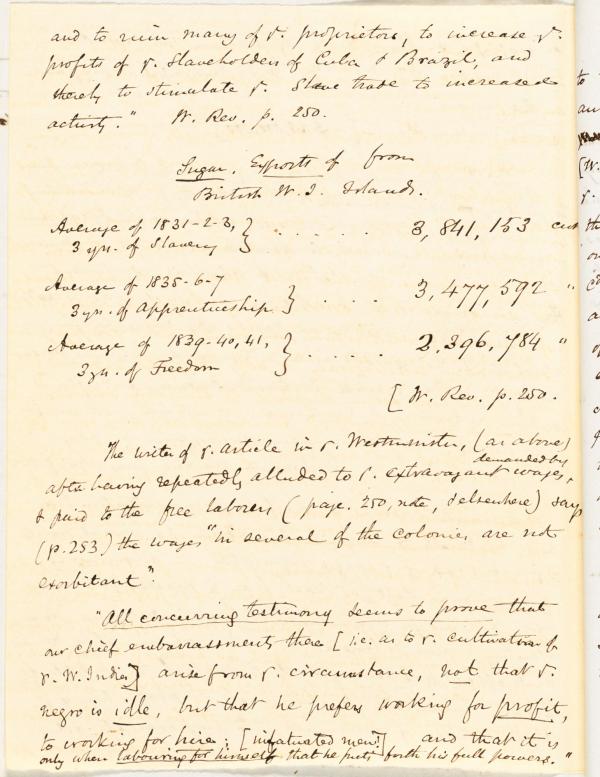 and to ruin many of ye. proprietors, to increase ye.
profits of ye. Slaveholders of Cuba & Brazil, and
thereby to stimulate ye. Slave trade to increased
activity." W. Rev. p. 250.
Sugar. Exports of from
British W. I. Islands.
Average of 1831-2-3, } . . . . . 3,841,153 cwt
3 yrs. of Slavery
Average of 1835-6-7 } . . . . 3,477,592 "
3 yrs. of Apprenticeship
Average of 1839-40, 41, } . . . . 2,396,784 "
3 yrs. of Freedom
[W. Rev. p. 250.
The writer of ye. article in ye. Westminster, (as above)
demanded by
after having repeatedly alluded to ye. extravagant wages,
& paid to the free laborers (page. 250, note, & elsewhere) says
(p. 253) the wages "in several of the colonies are not
exorbitant".
"All concurring testimony seems to prove that
our chief embarrassments there [i.e. as to ye. cultivation of
ye. W. Indies] arise from ye. circumstance, not that ye.
negro is idle, but that he prefers working for profit,
to working for hire; [infatuated men!] and that it is
only when labouring for himself that he puts forth his full powers."